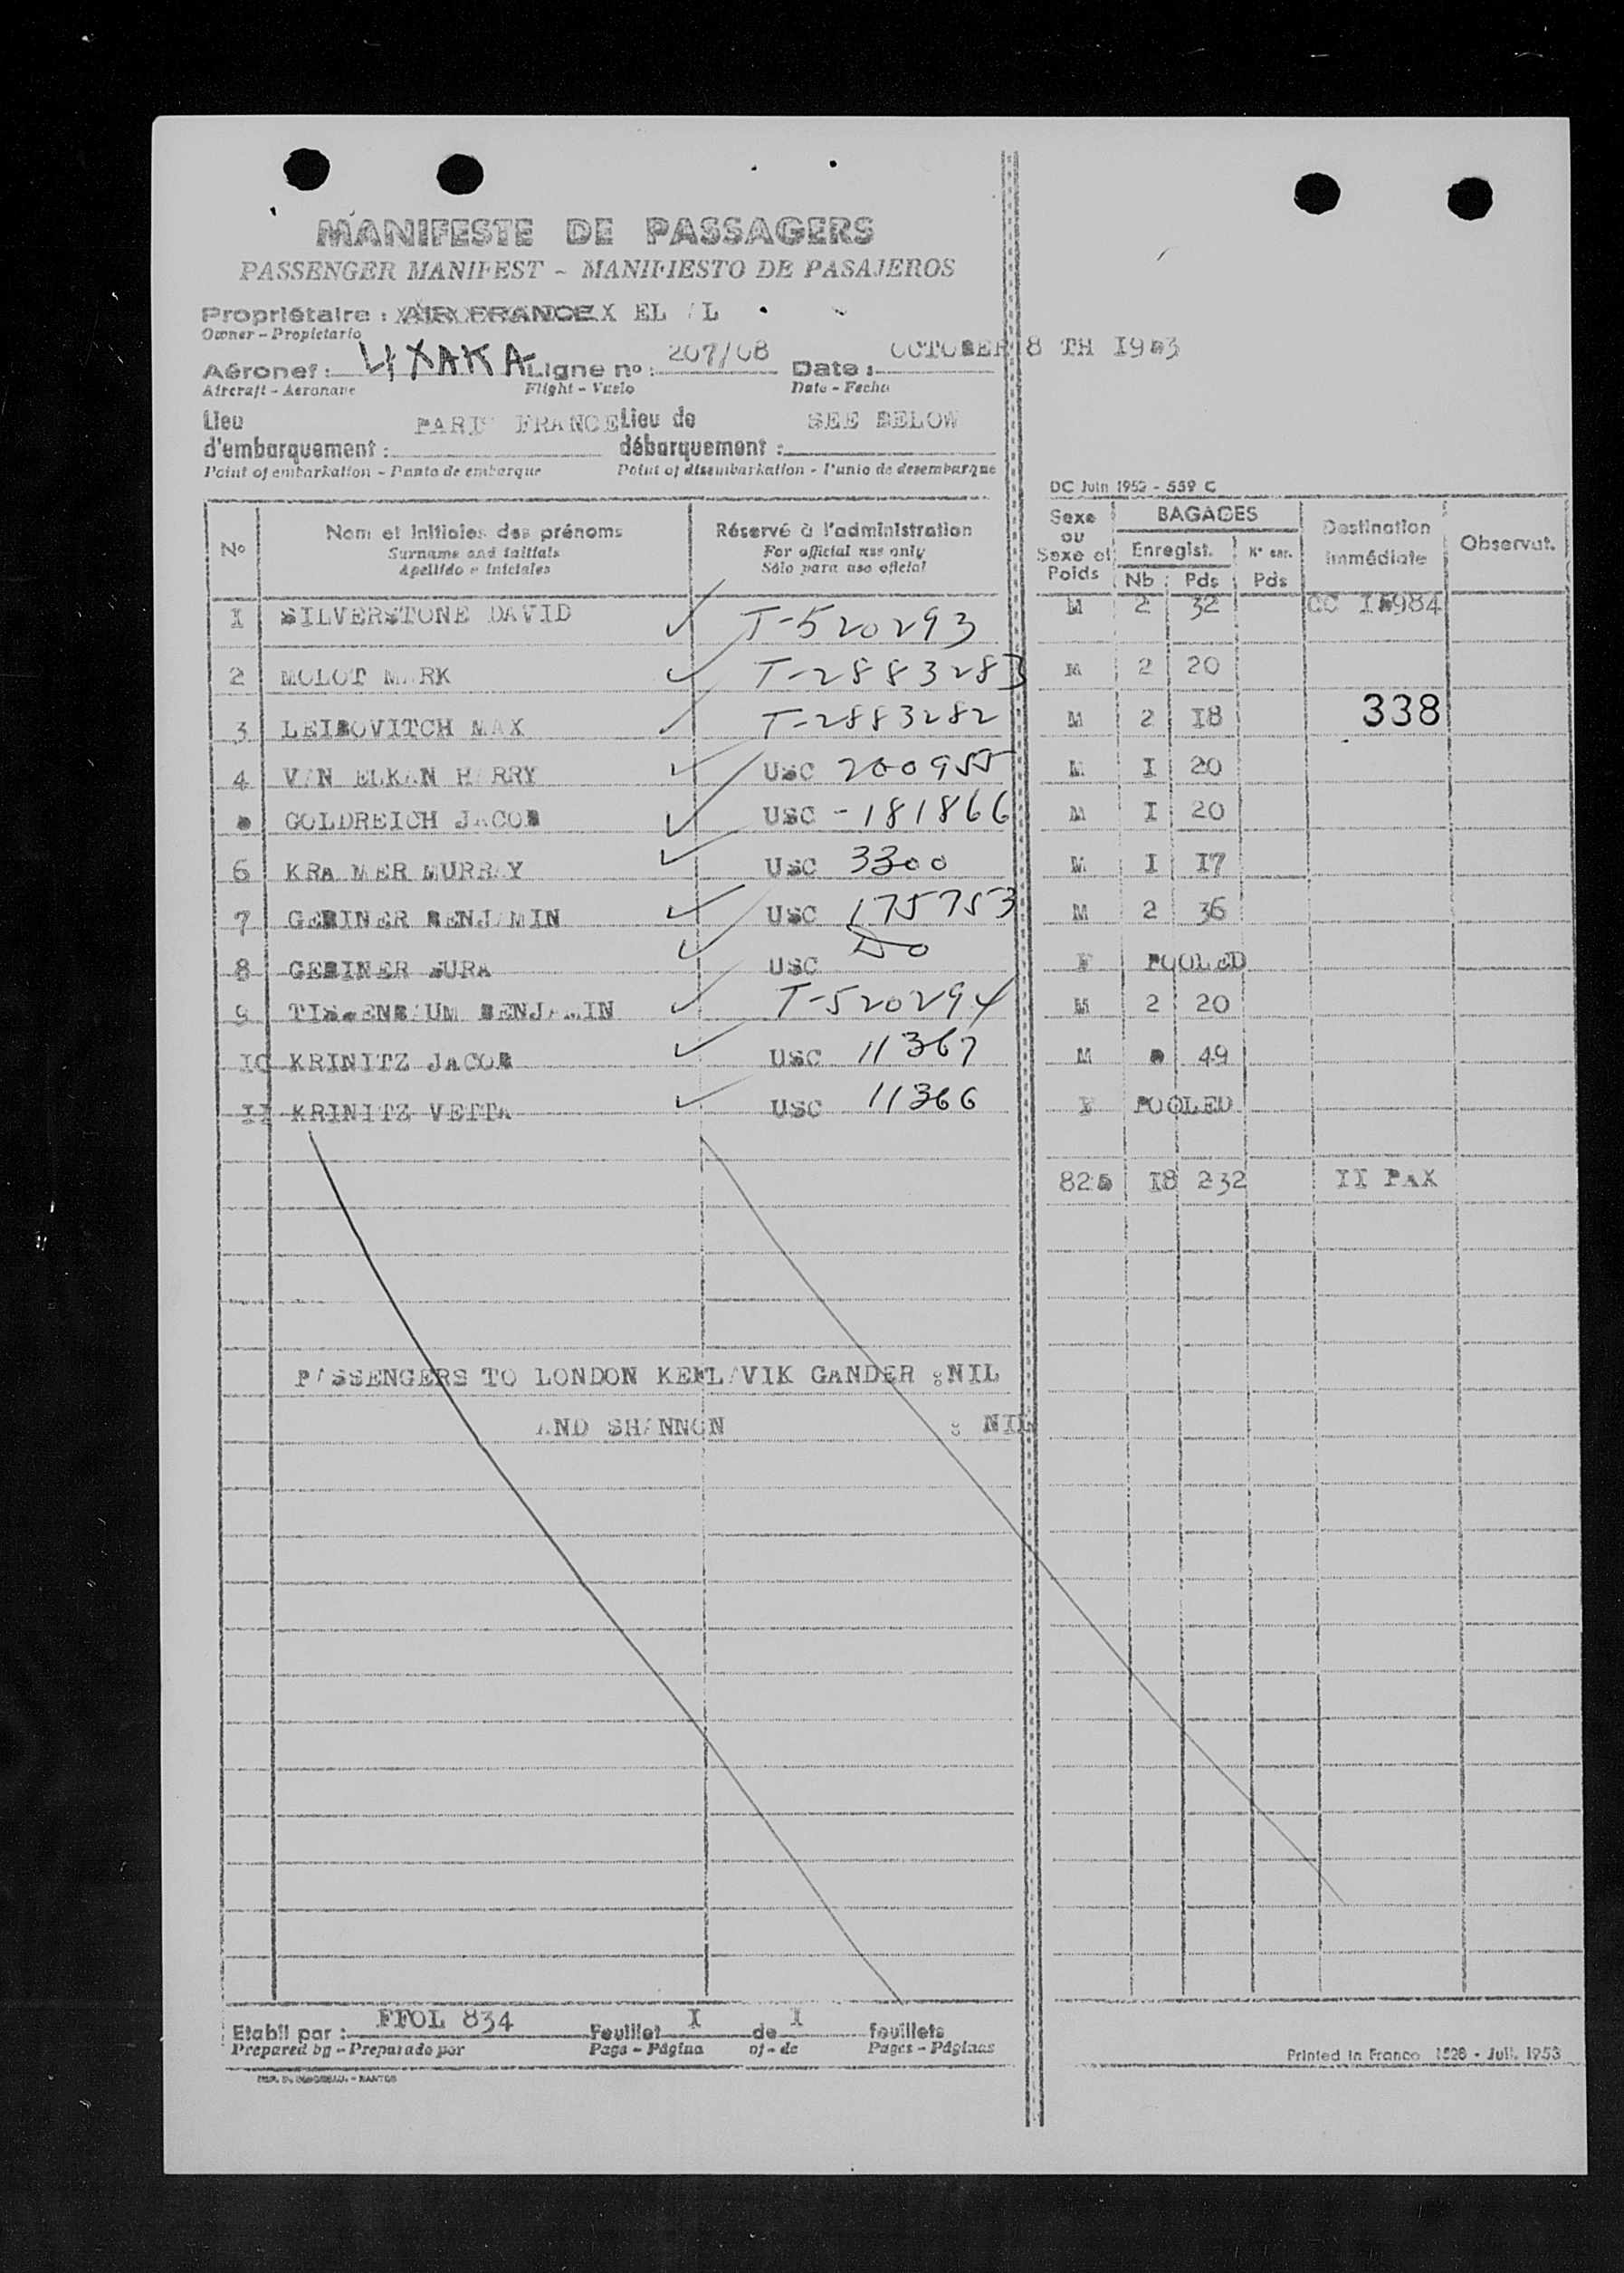 MANIFESTE DE PASSAGERS
PASSENGER MANIFEST - MANIFIESTO DE PASAJEROS
Propriétaire : AIR FRANCE X EL AL
Owner - Propietario
Aéronef : 4XAKA Ligne nº : 207/08 Date : OCTOBER 8 TH I953
Aircraft - Aeronave Flight - Vuelo Date - Fecha
Lieu d'embarquement : PARIS FRANCE Lieu de débarquement : SEE BELOW
Point of embarkation - Punto de embarque Point of disembarkation - Punto de desembarque
DC Juin 1952 - 559 C
Nº Nom et initiales des prénoms Réservé à l'administration Sexe ou Sexe et Poids BAGAGES Destination immédiate Observat.
Surname and initials For official use only Enregist. Nº enr.
Apellido e iniciales Sólo para uso oficial Nb Pds Pds
I SILVERSTONE DAVID ✓ T-520293 M 2 32 CC I5984
2 MOLOT MARK ✓ T-2883283 M 2 20
3 LEIBOVITCH MAX ✓ T-2883282 M 2 I8 338
4 VAN ELKAN HARRY ✓ USC 200955 M I 20
GOLDREICH JACOB ✓ USC -181866 M I 20
6 KRA MER MURRAY ✓ USC 3300 M I I7
7 GEBINER BENJAMIN ✓ USC 175753 M 2 36
8 GEBINER SURA ✓ USC Do F POOLED
9 BENJAMIN ✓ T-520294 M 2 20
IO KRINITZ JACOB ✓ USC 11367 M 49
II KRINITZ VETTA ✓ USC 11366 F POOLED
825 I8 232 II PAX
PASSENGERS TO LONDON KEFLAVIK GANDER :NIL
AND SHANNON : NIL
Etabli par : FFOL 834 Feuillet I de I feuillets
Prepared by - Preparado por Page - Página of - de Pages - Páginas
Printed in France 1528 - Juil. 1953